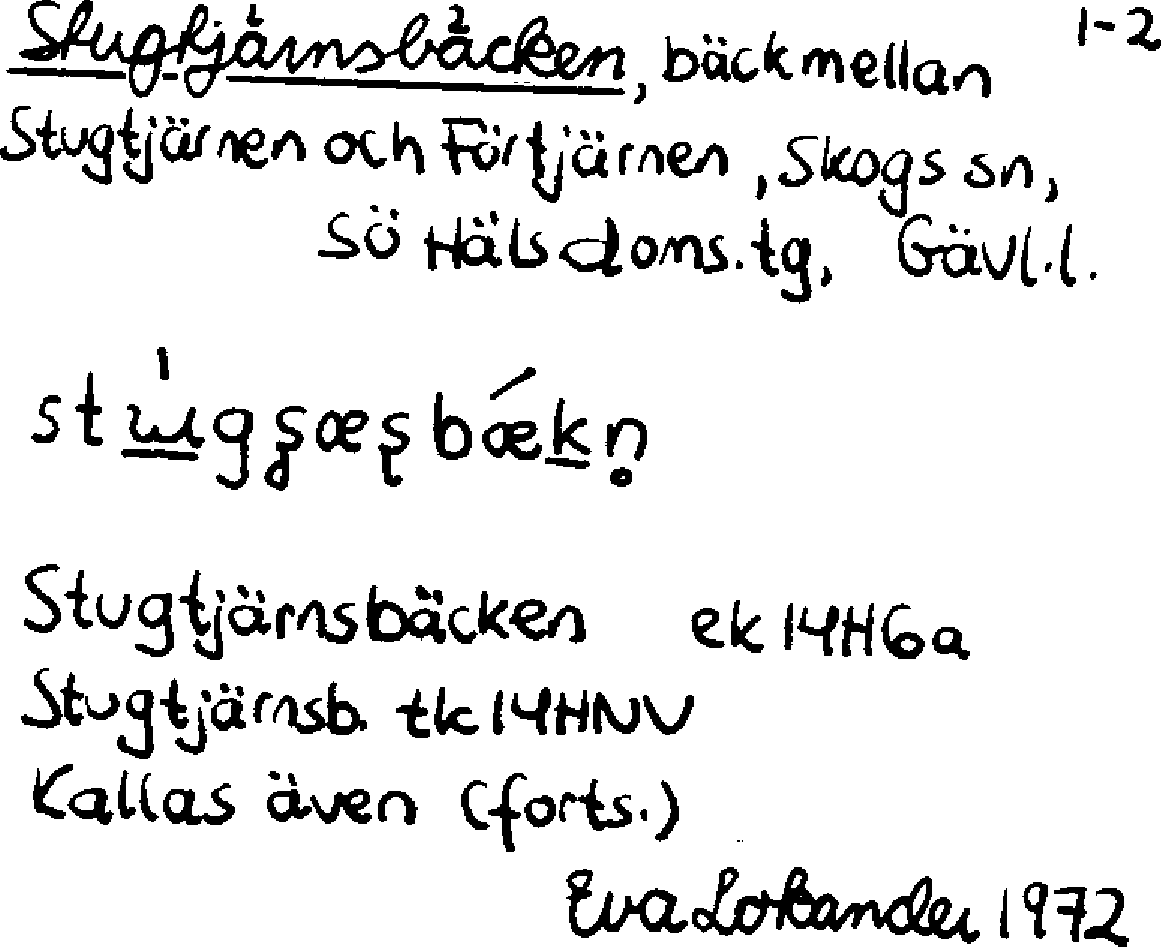 Stugtjärnsbäcken, bäck mellan 1-2
Stugtjärnen och Förtjärnen, Skogs sn,
Sö Häls doms.tg, Gävl.l.
Stugtjärnsbäcken ek 14H6a
Stugtjärnsb. tk 14HNV
Kallas även (forts.)
Eva 1972